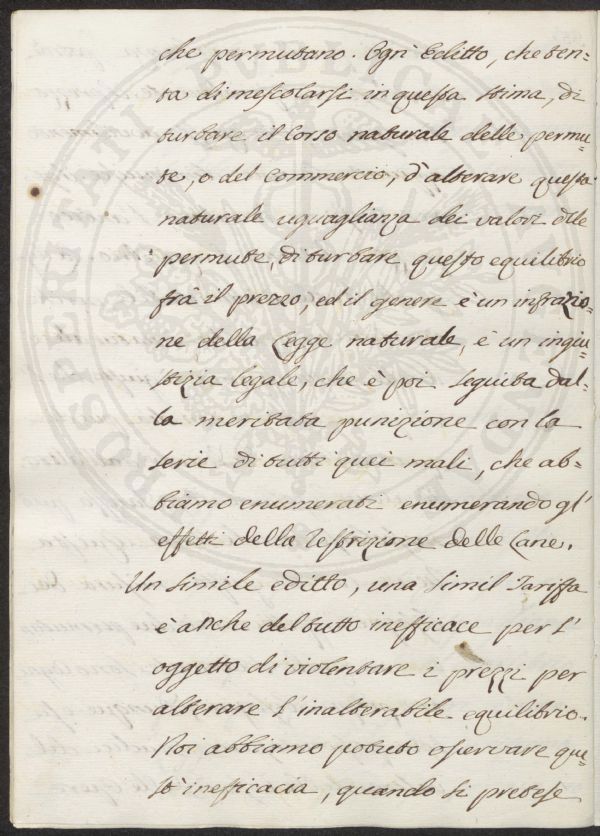 che permutano. Ogni Editto, che ten-
ta di mescolarsi in questa stima, di
turbare il Corso naturale delle permu-
te, o del Commercio, d'alterare questa
naturale uguaglianza dei valori dlle
permute, di turbare questo equilibrio
frà il prezzo, ed il genere è un infrazio-
ne della Legge naturale, è un ingiu-
stizia legale, che è poi seguita dal-
la meritata punizione con la
serie di tutti quei mali, che ab-
biamo enumerati enumerando gl'
effetti della restrizione delle Lane.
Un simile editto, una simil Tariffa
è anche del tutto inefficace per l'
oggetto di violentare i prezzi per
alterare l'inalterabile equilibrio.
Noi abbiamo potuto osservare que-
st'inefficacia, quando si pretese